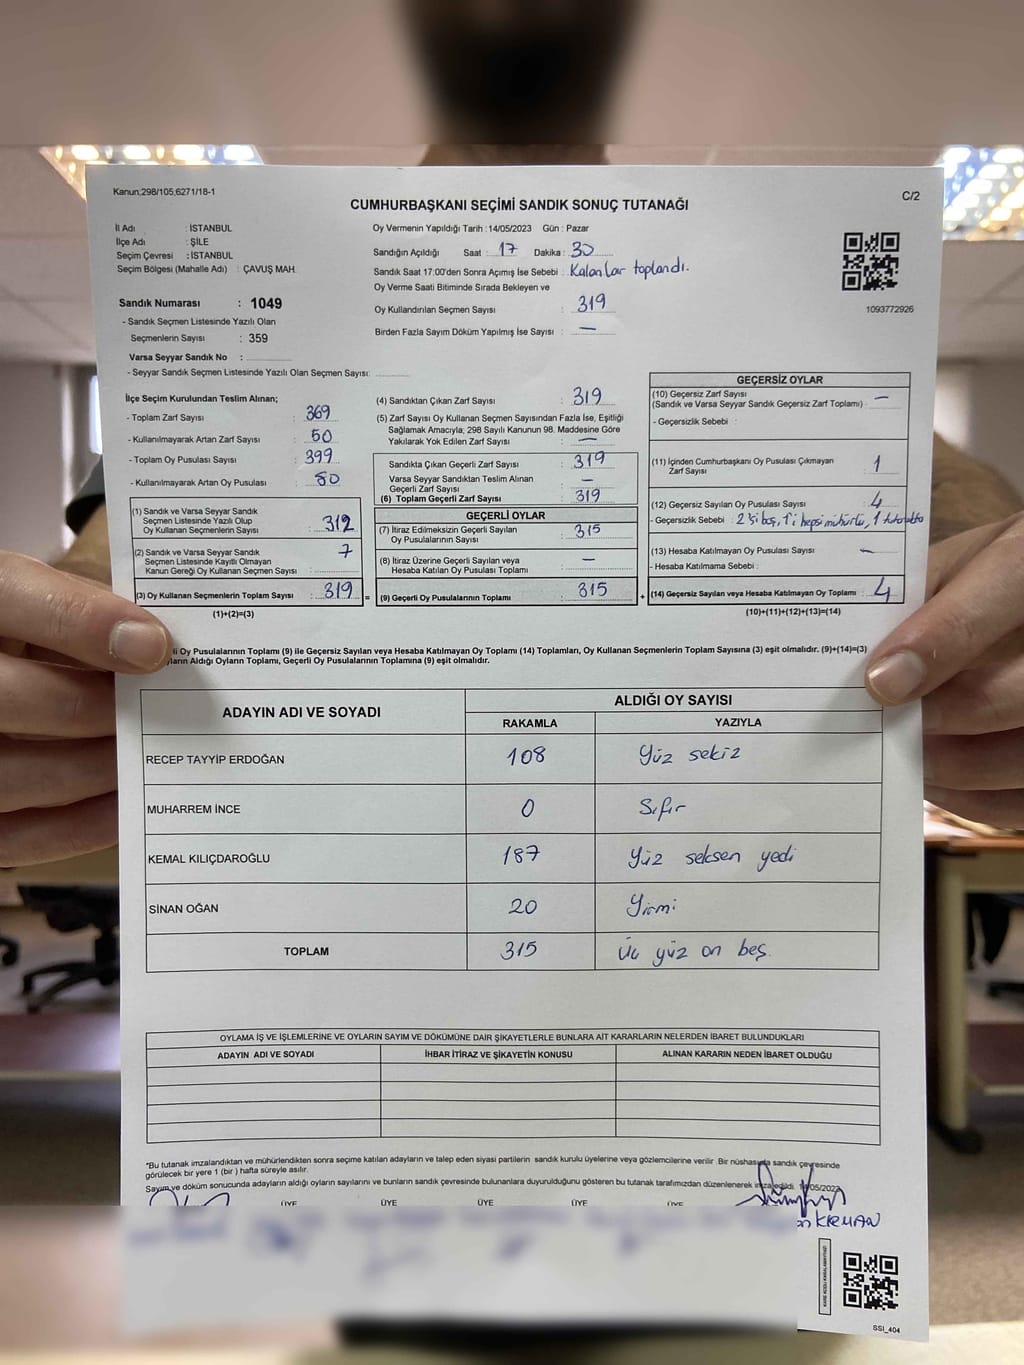 Kanun;298/105;6271/18-1
C/2
CUMHURBAŞKANI SEÇİMİ SANDIK SONUÇ TUTANAĞI
İl Adı : İSTANBUL
İlçe Adı : ŞİLE
Seçim Çevresi : İSTANBUL
Seçim Bölgesi (Mahalle Adı) : ÇAVUŞ MAH.
Oy Vermenin Yapıldığı Tarih : 14/05/2023 Gün : Pazar
Sandığın Açıldığı Saat : 17 Dakika : 30
Sandık Saat 17:00'den Sonra Açımış İse Sebebi : Kalanlar toplandı.
Oy Verme Saati Bitiminde Sırada Bekleyen ve
Oy Kullandırılan Seçmen Sayısı : 319
Birden Fazla Sayım Döküm Yapılmış İse Sayısı : —
1093772926
Sandık Numarası : 1049
- Sandık Seçmen Listesinde Yazılı Olan
Seçmenlerin Sayısı : 359
Varsa Seyyar Sandık No :
- Seyyar Sandık Seçmen Listesinde Yazılı Olan Seçmen Sayısı:
İlçe Seçim Kurulundan Teslim Alınan;
- Toplam Zarf Sayısı : 369
- Kullanılmayarak Artan Zarf Sayısı : 50
- Toplam Oy Pusulası Sayısı : 399
- Kullanılmayarak Artan Oy Pusulası : 80
(1) Sandık ve Varsa Seyyar Sandık
Seçmen Listesinde Yazılı Olup
Oy Kullanan Seçmenlerin Sayısı : 312
(2) Sandık ve Varsa Seyyar Sandık
Seçmen Listesinde Kayıtlı Olmayan
Kanun Gereği Oy Kullanan Seçmen Sayısı : 7
(3) Oy Kullanan Seçmenlerin Toplam Sayısı : 319 =
(1)+(2)=(3)
(4) Sandıktan Çıkan Zarf Sayısı : 319
(5) Zarf Sayısı Oy Kullanan Seçmen Sayısından Fazla İse, Eşitliği
Sağlamak Amacıyla; 298 Sayılı Kanunun 98. Maddesine Göre
Yakılarak Yok Edilen Zarf Sayısı : —
Sandıkta Çıkan Geçerli Zarf Sayısı : 319
Varsa Seyyar Sandıktan Teslim Alınan
Geçerli Zarf Sayısı : —
(6) Toplam Geçerli Zarf Sayısı : 319
GEÇERLİ OYLAR
(7) İtiraz Edilmeksizin Geçerli Sayılan
Oy Pusulalarının Sayısı : 315
(8) İtiraz Üzerine Geçerli Sayılan veya
Hesaba Katılan Oy Pusulası Toplamı : —
(9) Geçerli Oy Pusulalarının Toplamı : 315 +
GEÇERSİZ OYLAR
(10) Geçersiz Zarf Sayısı
(Sandık ve Varsa Seyyar Sandık Geçersiz Zarf Toplamı) : —
- Geçersizlik Sebebi :
(11) İçinden Cumhurbaşkanı Oy Pusulası Çıkmayan
Zarf Sayısı : 1
(12) Geçersiz Sayılan Oy Pusulası Sayısı : 4
- Geçersizlik Sebebi : 2'si boş, 1'i hepsi mühürlü, 1
(13) Hesaba Katılmayan Oy Pusulası Sayısı : —
- Hesaba Katılmama Sebebi :
(14) Geçersiz Sayılan veya Hesaba Katılmayan Oy Toplamı : 4
(10)+(11)+(12)+(13)=(14)
Oy Pusulalarının Toplamı (9) ile Geçersiz Sayılan veya Hesaba Katılmayan Oy Toplamı (14) Toplamları, Oy Kullanan Seçmenlerin Toplam Sayısına (3) eşit olmalıdır. (9)+(14)=(3)
Aldığı Oyların Toplamı, Geçerli Oy Pusulalarının Toplamına (9) eşit olmalıdır.
ADAYIN ADI VE SOYADI
ALDIĞI OY SAYISI
RAKAMLA YAZIYLA
RECEP TAYYİP ERDOĞAN 108 Yüz sekiz
MUHARREM İNCE 0 Sıfır
KEMAL KILIÇDAROĞLU 187 Yüz seksen yedi
SİNAN OĞAN 20 Yirmi
TOPLAM 315 Üç yüz on beş.
OYLAMA İŞ VE İŞLEMLERİNE VE OYLARIN SAYIM VE DÖKÜMÜNE DAİR ŞİKAYETLERLE BUNLARA AİT KARARLARIN NELERDEN İBARET BULUNDUKLARI
ADAYIN ADI VE SOYADI İHBAR İTİRAZ VE ŞİKAYETİN KONUSU ALINAN KARARIN NEDEN İBARET OLDUĞU
*Bu tutanak imzalandıktan ve mühürlendikten sonra seçime katılan adayların ve talep eden siyasi partilerin sandık kurulu üyelerine veya gözlemcilerine verilir. Bir nüshası da sandık çevresinde
görülecek bir yere 1 (bir ) hafta süreyle asılır.
Sayım ve döküm sonucunda adayların aldığı oyların sayılarını ve bunların sandık çevresinde bulunanlara duyurulduğunu gösteren bu tutanak tarafımızdan düzenlenerek imza edildi. 14/05/2023
ÜYE ÜYE ÜYE ÜYE ÜYE
KIRMAN
SSI_404